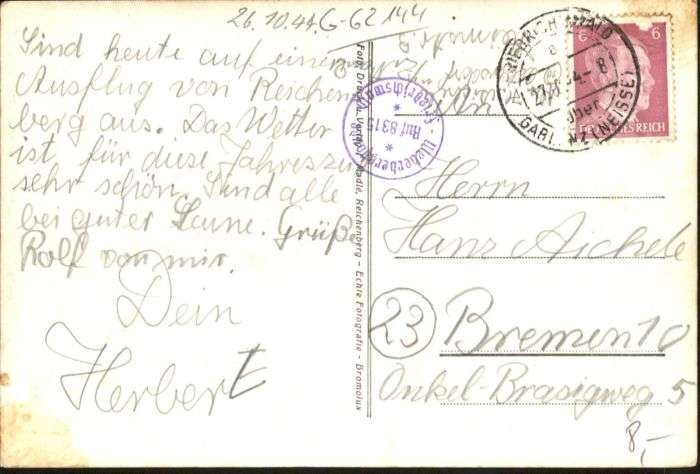 26.10.44 G-G2144
Sind heute auf einem
Ausflug von Reichen
berg aus. Das Wetter
ist für diese Jahreszeit
sehr schön. Sind alle
bei guter Laune. Grüße
Rolf von mir.
Dein
Herbert
Foto, Druck u. Verlag Radle, Reichenberg – Echte Fotografie – Bromolux
Ruf 8315
FRIEDRICHSWALD
über
GABLONZ (NEISSE)
6
DEUTSCHES REICH
An
Herrn
Hanz Aichele
23 Bremen 10
Onkel-Bräsigweg 5
8,-